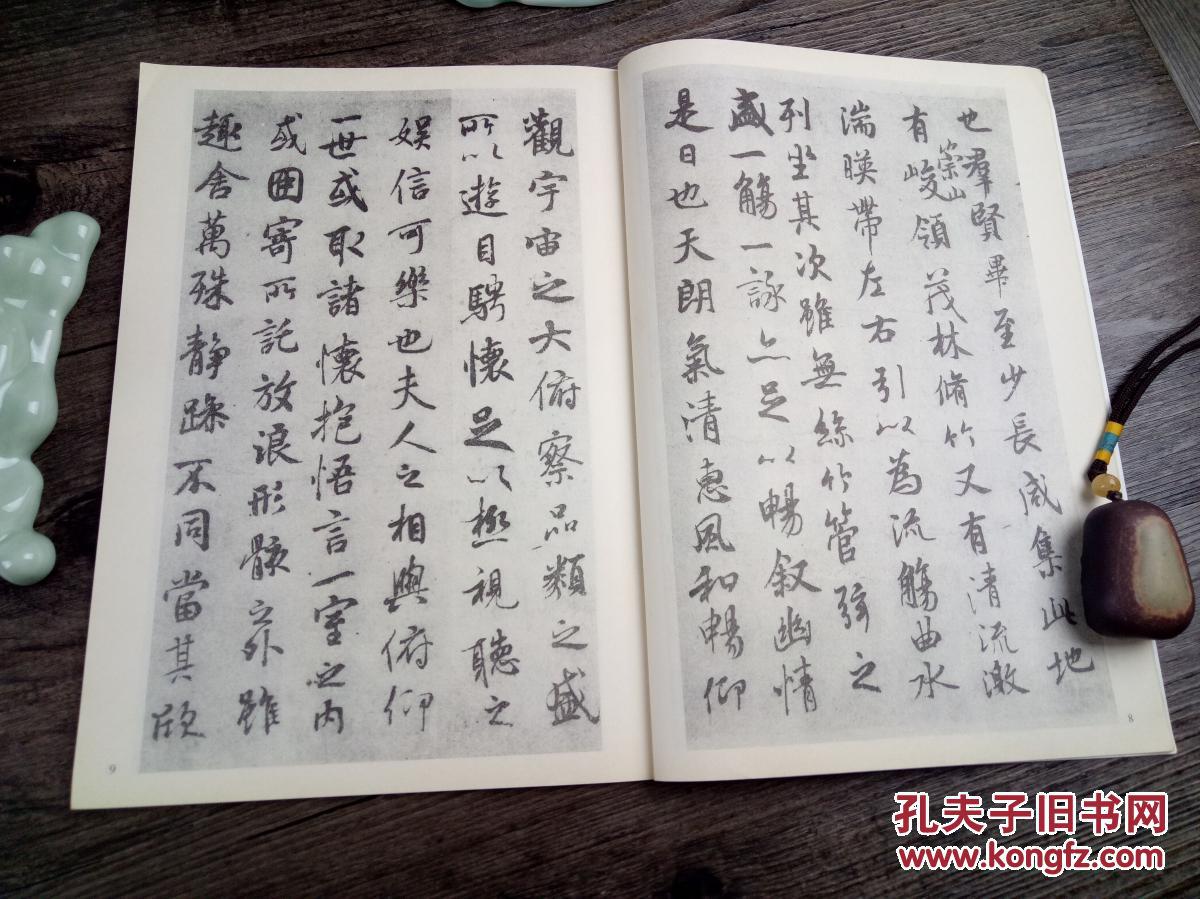 也羣賢畢至少長咸集此地
有崇山峻領茂林脩竹又有清流激
湍暎帶左右引以為流觴曲水
列坐其次雖無絲竹管弦之
盛一觴一詠亦足以暢叙幽情
是日也天朗氣清惠風和暢仰
8
觀宇宙之大俯察品類之盛
所以遊目騁懷足以極視聽之
娛信可樂也夫人之相與俯仰
一世或取諸懷抱悟言一室之內
或因寄所託放浪形骸之外雖
趣舍萬殊静躁不同當其欣
9
孔夫子旧书网
www.kongfz.com